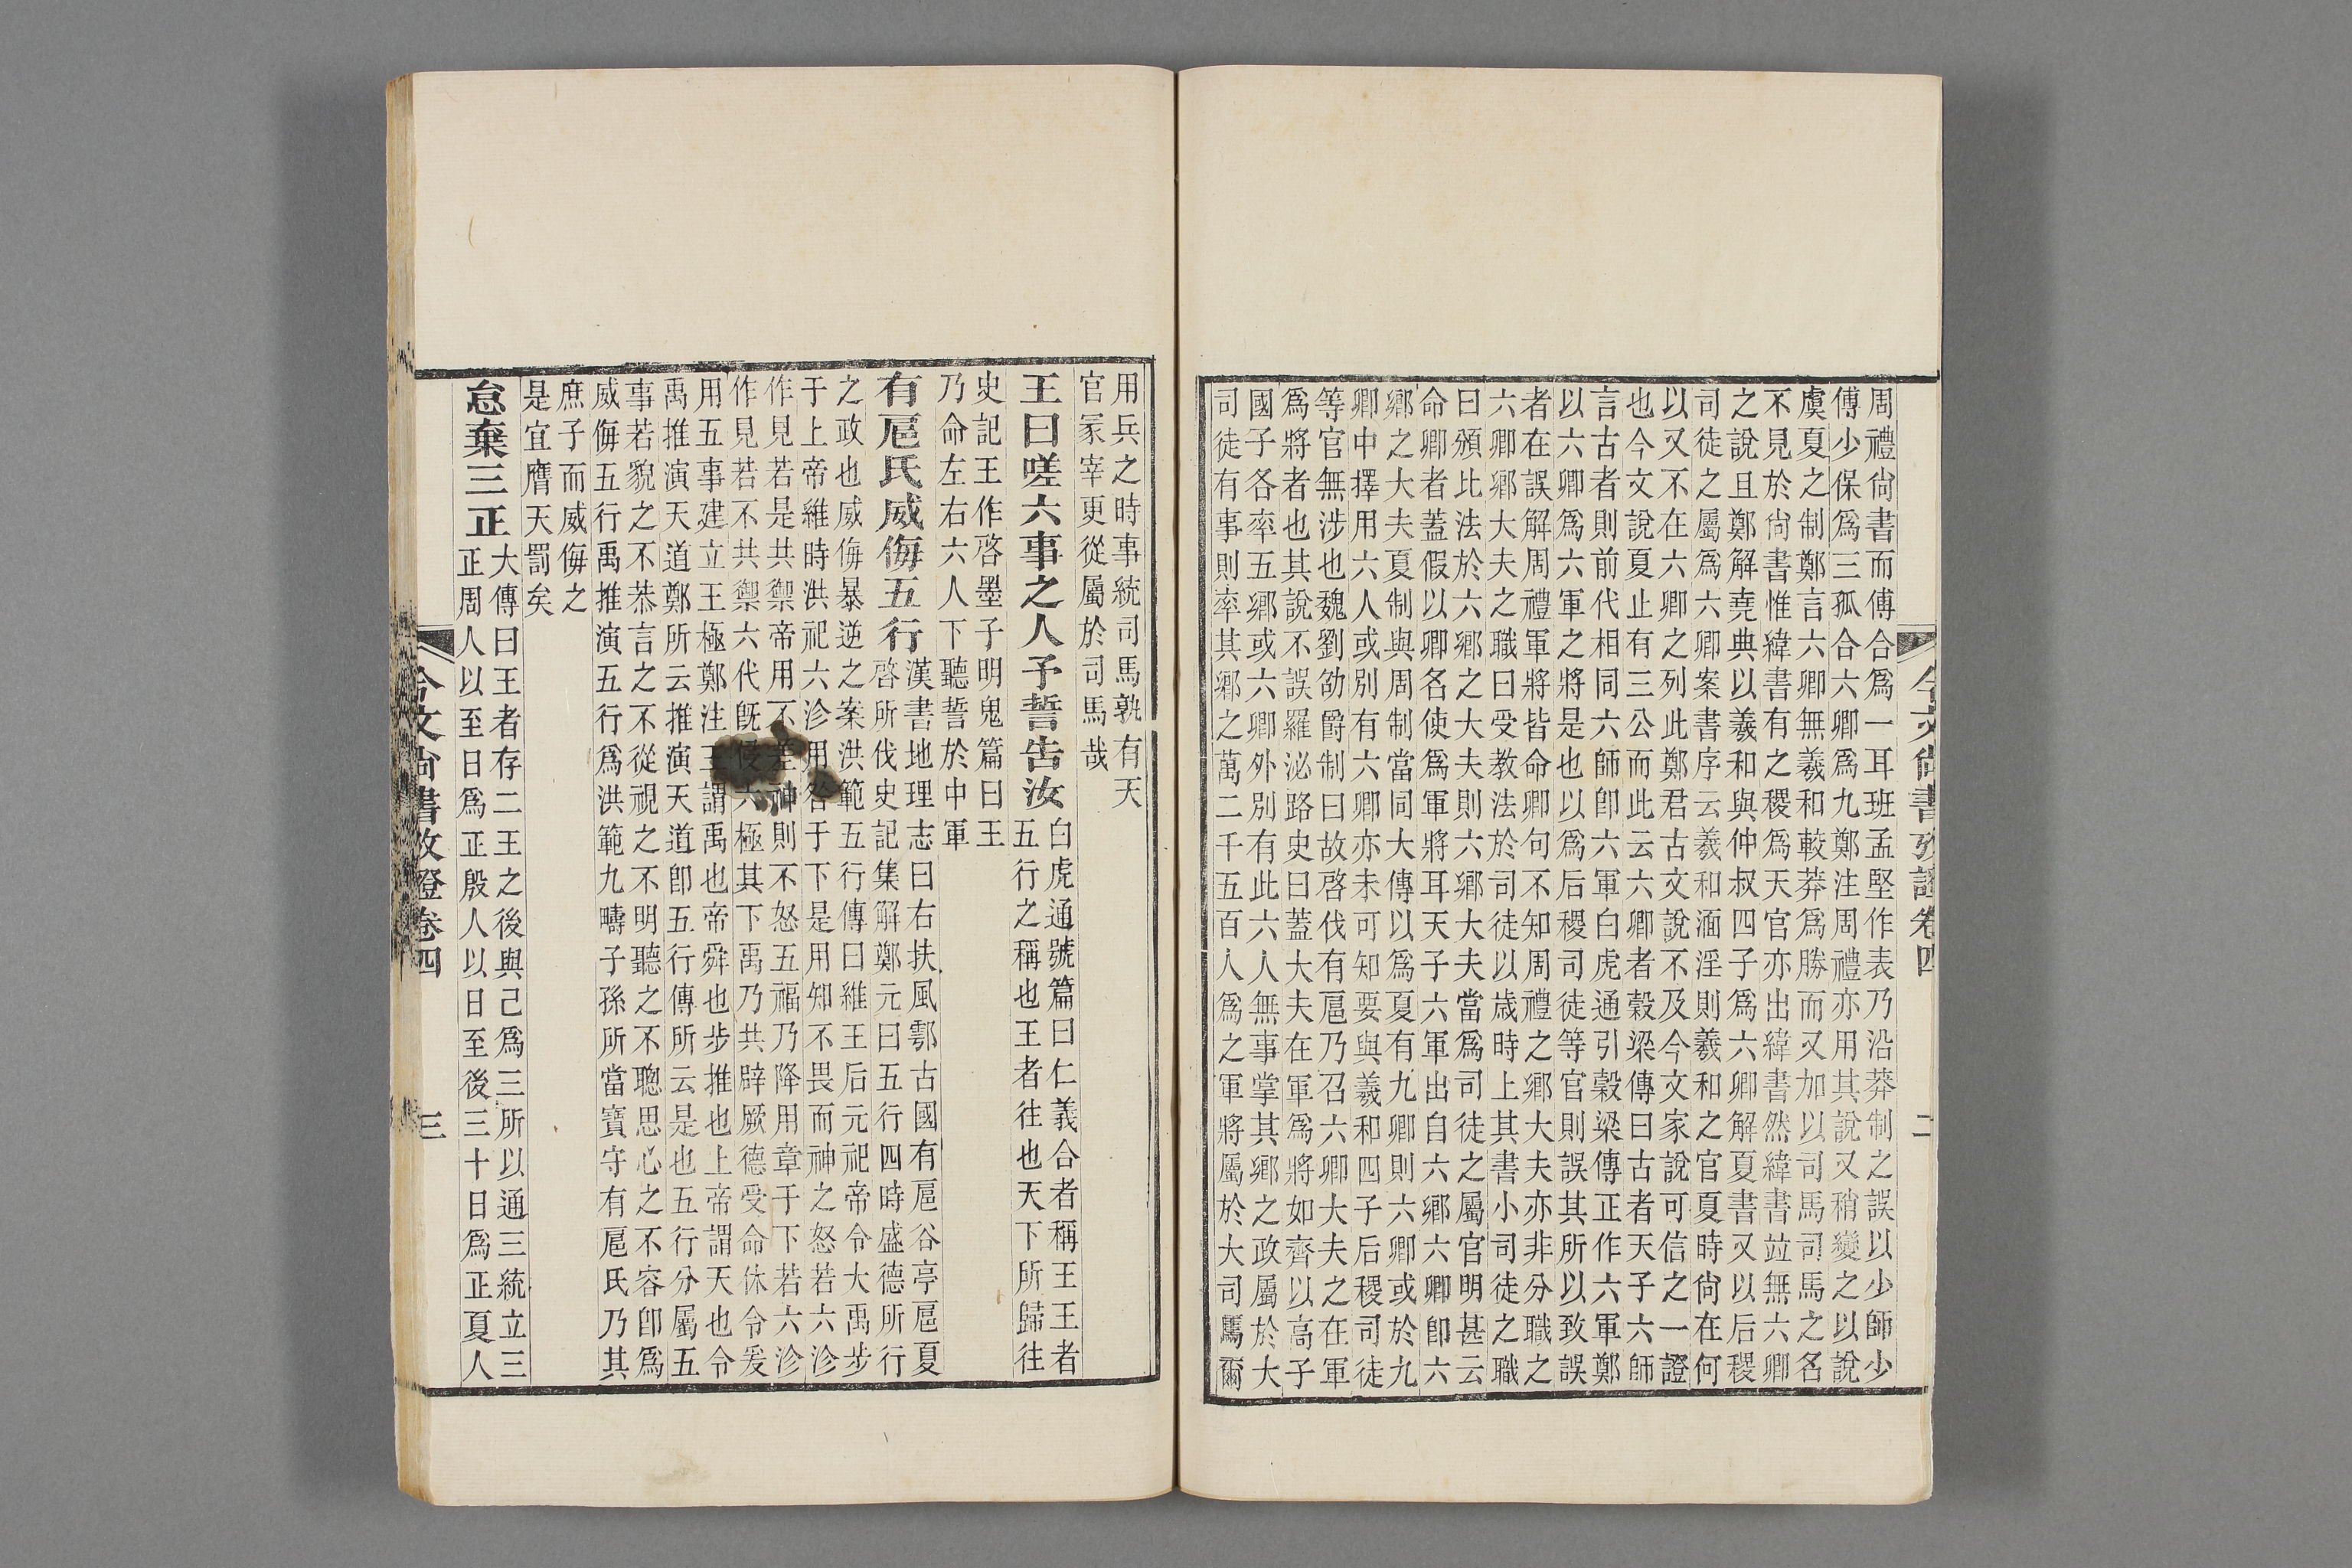 周禮尙書而傅合爲一耳班孟堅作表乃沿莽制之誤以少師少
傅少保爲三孤合六卿爲九鄭注周禮亦用其說又稍變之以說
虞夏之制鄭言六卿無羲和較莽爲勝而又加以司馬司馬之名
不見於尙書惟緯書有之稷爲天官亦出緯書然緯書竝無六卿
之說且鄭解堯典以羲和與仲叔四子爲六卿解夏書又以后稷
司徒之屬爲六卿案書序云羲和湎淫則羲和之官夏時尙在何
以又不在六卿之列此鄭君古文說不及今文家說可信之一證
也今文說夏止有三公而此云六卿者穀梁傳曰古者天子六師
言古者則前代相同六師卽六軍白虎通引穀梁傳正作六軍鄭
以六卿爲六軍之將是也以爲后稷司徒等官則誤其所以致誤
者在誤解周禮軍將皆命卿句不知周禮之鄉大夫亦非分職之
六卿鄉大夫之職曰受教法於司徒以歲時上其書小司徒之職
曰頒比法於六鄉之大夫則六鄉大夫當爲司徒之屬官明甚云
命卿者蓋假以卿名使爲軍將耳天子六軍出自六鄉六卿卽六
鄉之大夫夏制與周制當同大傳以爲夏有九卿則六卿或於九
卿中擇用六人或別有六卿亦未可知要與羲和四子后稷司徒
等官無涉也魏劉劭爵制曰故啓伐有扈乃召六卿大夫之在軍
爲將者也其說不誤羅泌路史曰蓋大夫在軍爲將如齊以高子
國子各率五鄉或六卿外別有此六人無事掌其鄉之政屬於大
司徒有事則率其鄉之萬二千五百人爲之軍將屬於大司馬爾
今文尙書攷證卷四
二
用兵之時事統司馬孰有天
官冢宰更從屬於司馬哉
王曰嗟六事之人予誓告汝
白虎通號篇曰仁義合者稱王王者
五行之稱也王者往也天下所歸往
史記王作啓墨子明鬼篇曰王
乃命左右六人下聽誓於中軍
有扈氏威侮五行
漢書地理志曰右扶風鄠古國有扈谷亭扈夏
啓所伐史記集解鄭元曰五行四時盛德所行
之政也威侮暴逆之案洪範五行傳曰維王后元祀帝令大禹步
于上帝維時洪祀六沴用咎于下是用知不畏而神之怒若六沴
作見若是共禦帝用不差神則不怒五福乃降用章于下若六沴
作見若不共禦六代旣侵六極其下禹乃共辟厥德受命休令爰
用五事建立王極鄭注王謂禹也帝舜也步推也上帝謂天也令
禹推演天道鄭所云推演天道卽五行傳所云是也五行分屬五
事若貌之不恭言之不從視之不明聽之不聰思心之不容卽爲
威侮五行禹推演五行爲洪範九疇子孫所當寶守有扈氏乃其
庶子而威侮之
是宜膺天罰矣
怠棄三正
大傳曰王者存二王之後與己爲三所以通三統立三
正周人以至日爲正殷人以日至後三十日爲正夏人
今文尙書攷證卷四
三